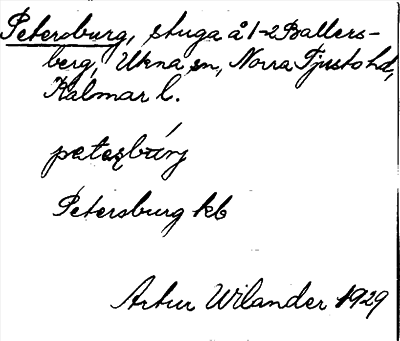 Petersburg, stuga å 1-2 Ballers-
berg, Ukna sn, Norra Tjusto hd,
Kalmar l.
petəʂbúrj
Petersburg kb
Artur Wilander 1929